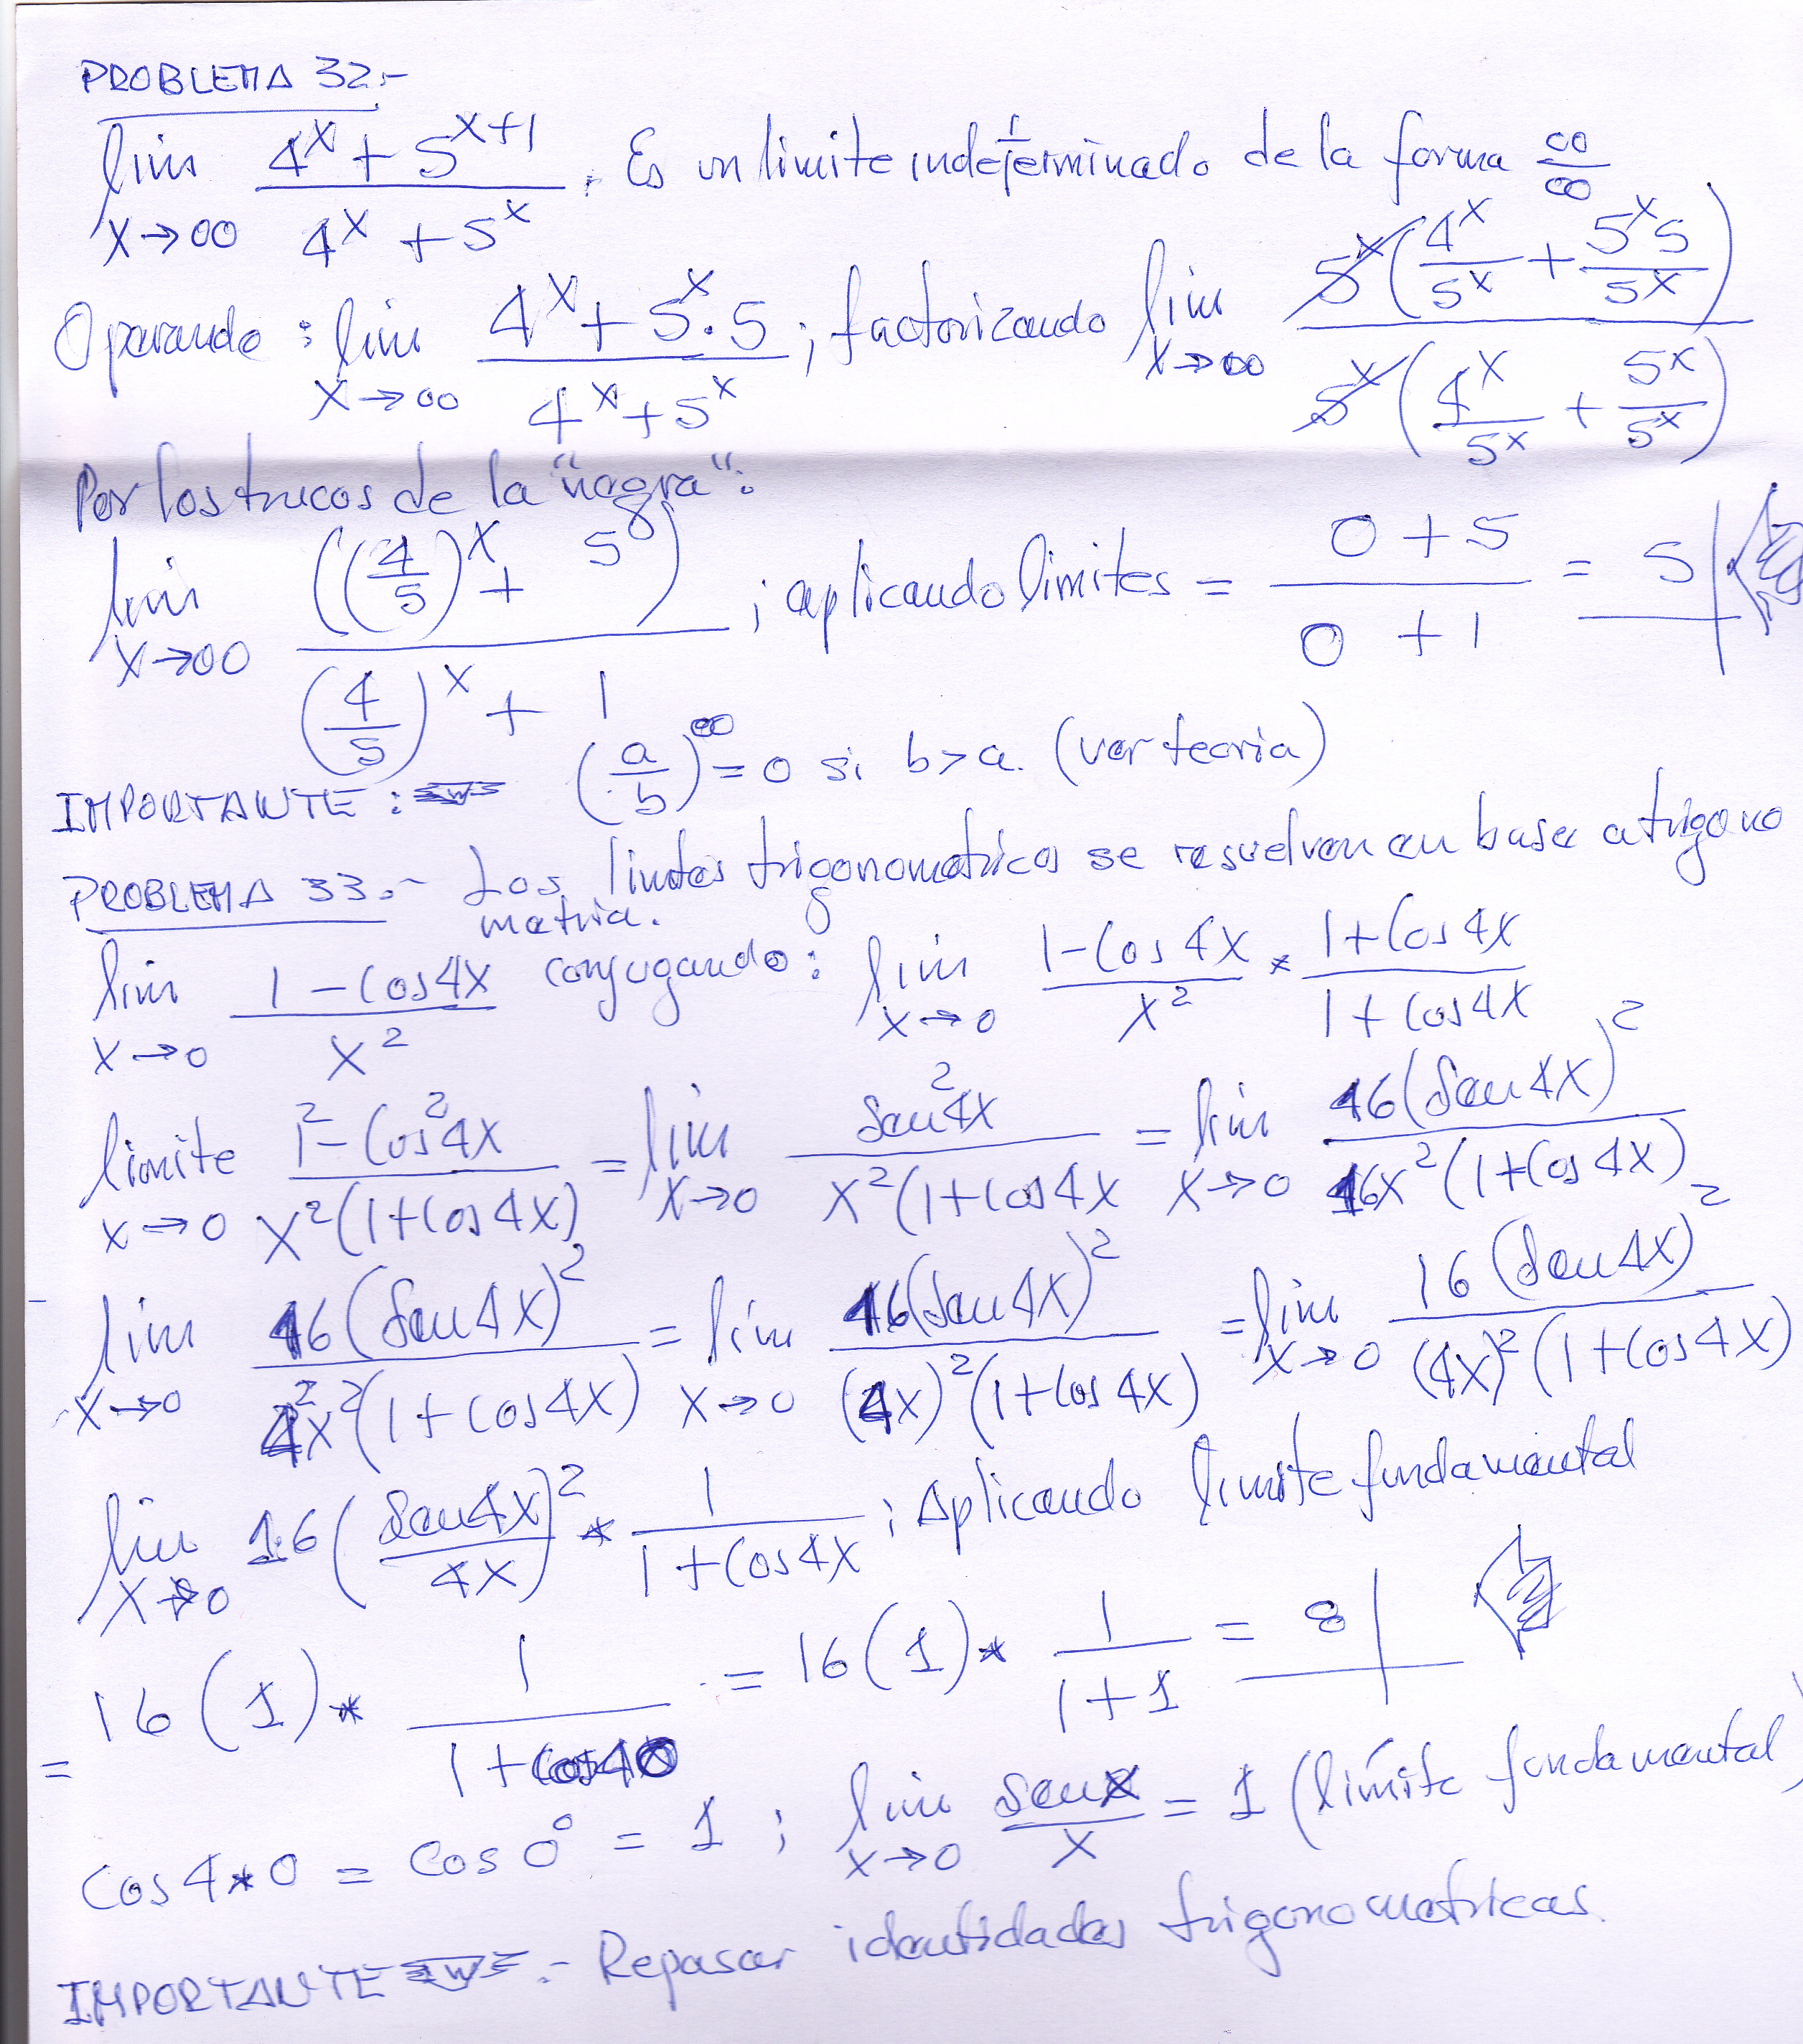 PROBLEMA 32.-
lim x→∞ (4^x + 5^(x+1)) / (4^x + 5^x). Es un limite indeterminado de la forma ∞/∞
Operando: lim x→∞ (4^x + 5^x·5) / (4^x + 5^x); factorizando lim x→∞ 5^x(4^x/5^x + 5^x5/5^x) / 5^x(4^x/5^x + 5^x/5^x)
Por los trucos de la "nagra":
lim x→∞ ((4/5)^x + 5) / ((4/5)^x + 1); aplicando limites = (0+5)/(0+1) = 5
IMPORTANTE: (a/b)^∞ = 0 si b>a. (ver teoria)
PROBLEMA 33.- Los limites trigonometricos se resuelven en base a trigono
metria.
lim x→0 (1-Cos4x)/x² conjugando: lim x→0 (1-Cos4x)/x² * (1+Cos4x)/(1+Cos4x)
limite x→0 (1²-Cos²4x)/(x²(1+Cos4x)) = lim x→0 Sen²4x/(x²(1+Cos4x = lim x→0 16(Sen4x)²/(16x²(1+Cos4x)
lim x→0 16(Sen4x)²/(4²x²(1+Cos4x) = lim x→0 16(Sen4x)²/((4x)²(1+Cos4x) = lim x→0 16(Sen4x)²/((4x)²(1+Cos4x)
lim x→0 16(Sen4x/4x)² * 1/(1+Cos4x); Aplicando limite fundamental
= 16(1)* 1/(1+Cos40) = 16(1)* 1/(1+1) = 8
Cos4*0 = Cos0° = 1; lim x→0 Senx/x = 1 (límite fundamental)
IMPORTANTE.- Repasar identidades trigonometricas.